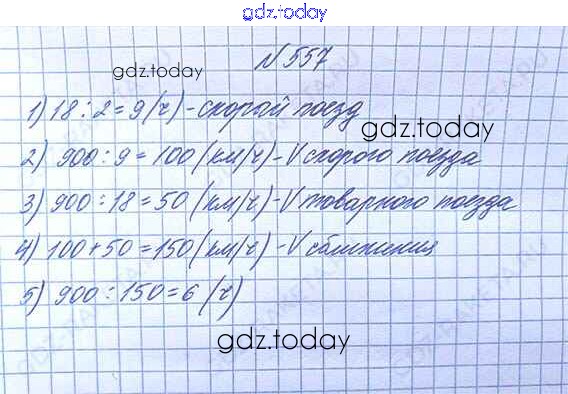 gdz.today
N 557
gdz.today
1) 18 : 2 = 9 (ч) - скорый поезд
gdz.today
2) 900 : 9 = 100 (км/ч) - V скорого поезда
3) 900 : 18 = 50 (км/ч) - V товарного поезда
4) 100 + 50 = 150 (км/ч) - V сближения
5) 900 : 150 = 6 (ч)
gdz.today